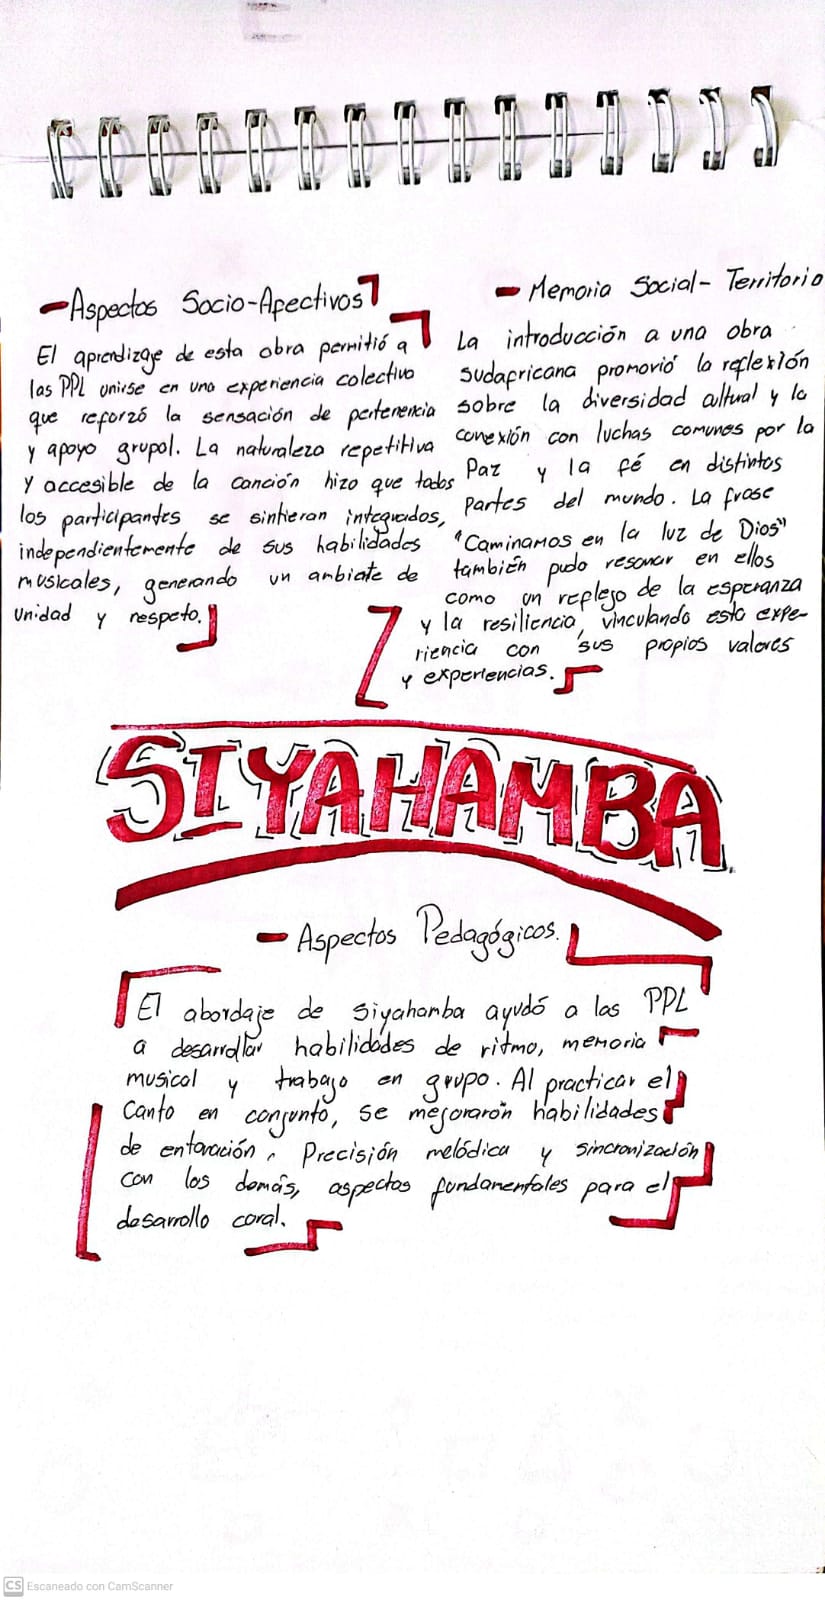 - Aspectos Socio-Afectivos
El aprendizaje de esta obra permitió a
las PPL unirse en una experiencia colectiva
que reforzó la sensación de pertenencia
y apoyo grupal. La naturaleza repetitiva
y accesible de la canción hizo que todos
los participantes se sintieran integrados,
independientemente de sus habilidades
musicales, generando un ambiente de
unidad y respeto.
- Memoria Social - Territorio
La introducción a una obra
sudafricana promovió la reflexión
sobre la diversidad cultural y la
conexión con luchas comunes por la
Paz y la fé en distintos
partes del mundo. La frase
"Caminamos en la luz de Dios"
también pudo resonar en ellos
como un reflejo de la esperanza
y la resiliencia, vinculando esta expe-
riencia con sus propios valores
y experiencias.
SIYAHAMBA
- Aspectos Pedagógicos.
El abordaje de Siyahamba ayudó a las PPL
a desarrollar habilidades de ritmo, memoria
musical y trabajo en grupo. Al practicar el
Canto en conjunto, se mejoraron habilidades
de entonación, Precisión melódica y sincronización
con los demás, aspectos fundamentales para el
desarrollo coral.
CS Escaneado con CamScanner